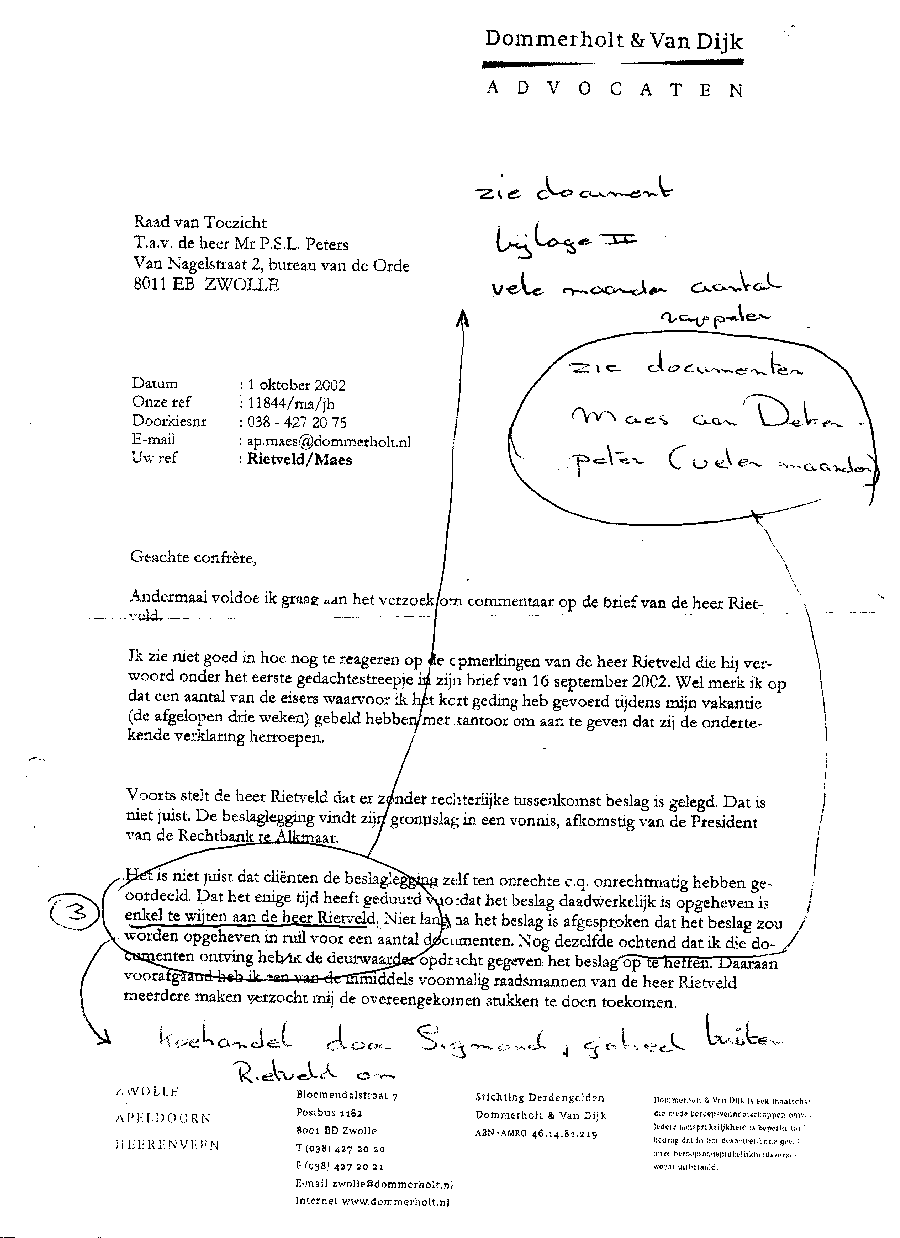 Dommerholt & Van Dijk
ADVOCATEN
zie document
bijlage II
vele maanden aantal
rappelen
Raad van Toezicht
T.a.v. de heer Mr P.S.L. Peters
Van Nagelstraat 2, bureau van de Orde
8011 EB ZWOLLE
zie documenten
Maes aan Deken
peter (vele maanden)
Datum : 1 oktober 2002
Onze ref : 11844/ma/jh
Doorkiesnr : 038 - 427 20 75
E-mail : ap.maes@dommerholt.nl
Uw ref : Rietveld/Maes
Geachte confrère,
Andermaal voldoe ik graag aan het verzoek om commentaar op de brief van de heer Riet-
veld.
Ik zie niet goed in hoe nog te reageren op de opmerkingen van de heer Rietveld die hij ver-
woord onder het eerste gedachtestreepje in zijn brief van 16 september 2002. Wel merk ik op
dat een aantal van de eisers waarvoor ik het kort geding heb gevoerd tijdens mijn vakantie
(de afgelopen drie weken) gebeld hebben met kantoor om aan te geven dat zij de onderte-
kende verklaring herroepen.
Voorts stelt de heer Rietveld dat er zonder rechterlijke tussenkomst beslag is gelegd. Dat is
niet juist. De beslaglegging vindt zijn grondslag in een vonnis, afkomstig van de President
van de Rechtbank te Alkmaar.
3
Het is niet juist dat cliënten de beslaglegging zelf ten onrechte c.q. onrechtmatig hebben ge-
oordeeld. Dat het enige tijd heeft geduurd voordat het beslag daadwerkelijk is opgeheven is
enkel te wijten aan de heer Rietveld. Niet lang na het beslag is afgesproken dat het beslag zou
worden opgeheven in ruil voor een aantal documenten. Nog dezelfde ochtend dat ik die do-
cumenten ontving heb ik de deurwaarder opdracht gegeven het beslag op te heffen. Daaraan
voorafgaand heb ik een van de inmiddels voormalig raadsmannen van de heer Rietveld
meerdere maken verzocht mij de overeengekomen stukken te doen toekomen.
Koehandel door Sigmond, geheel buiten
Rietveld om
ZWOLLE
APELDOORN
HEERENVEEN
Bloemendalstraat 7
Postbus 1182
8001 BD Zwolle
T (038) 427 20 20
F (038) 427 20 21
E-mail zwolle@dommerholt.nl
Internet www.dommerholt.nl
Stichting Derdengelden
Dommerholt & Van Dijk
ABN-AMRO 46.14.82.219
Dommerholt & Van Dijk is een maatschap